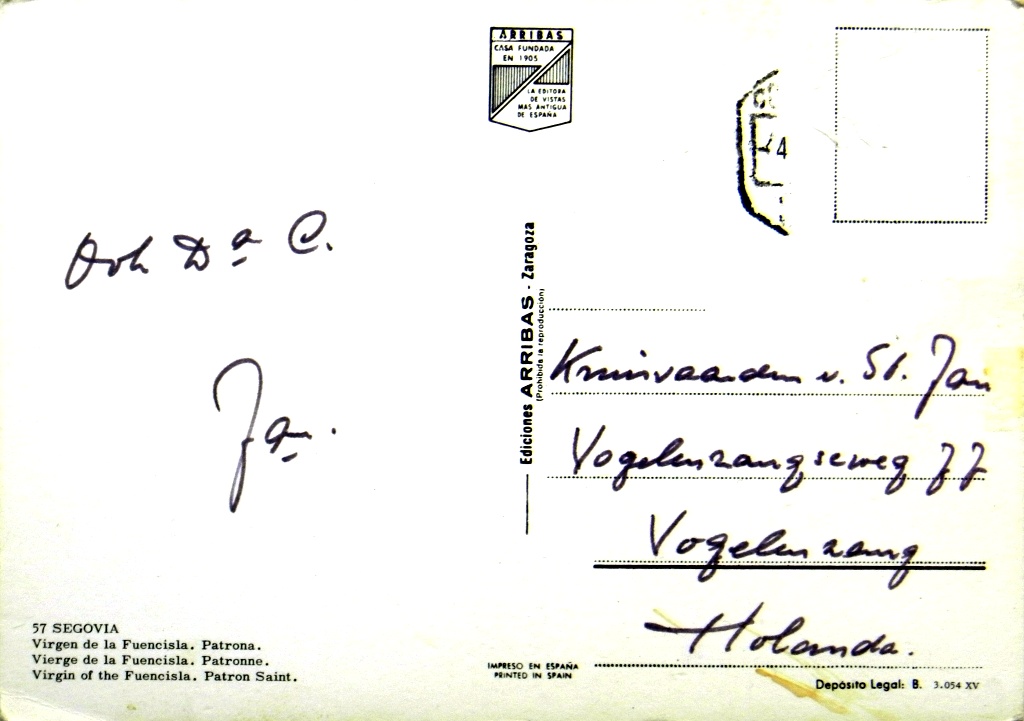 ARRIBAS
CASA FUNDADA
EN 1905
LA EDITORA
DE VISTAS
MAS ANTIGUA
DE ESPAÑA
4
Ook Dª C.
Jan.
Ediciones ARRIBAS - Zaragoza
(Prohibida la reproducción)
Kruisvaarders v. St. Jan
Vogelenzangseweg 77
Vogelenzang
Holanda.
57 SEGOVIA
Virgen de la Fuencisla. Patrona.
Vierge de la Fuencisla. Patronne.
Virgin of the Fuencisla. Patron Saint.
IMPRESO EN ESPAÑA
PRINTED IN SPAIN
Depósito Legal: B. 3.054 XV